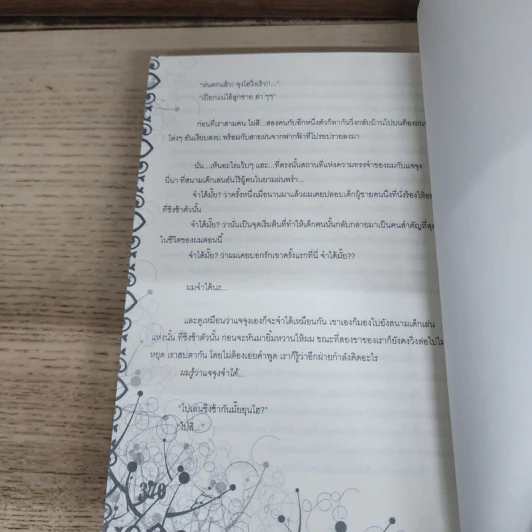 "ฝนตกแล้ว! จุงโฮวิ่งเร็ว!!..."
"เปียกแน่ไอ้ลูกชาย ฮ่า ๆๆ"
ก่อนที่เราสามคน ไม่สิ...สองคนกับอีกหนึ่งตัวก็พากันวิ่งกลับบ้านไปบนท้องถนน
โล่งๆ อันเงียบสงบ พร้อมกับสายฝนจากฟากฟ้าที่โปรยปรายลงมา
นั่น...เห็นอะไรแว้บๆ แฮะ...ที่ตรงนั้นสถานที่แห่งความทรงจำของผมกับแจจุง
นี่นา ที่สนามเด็กเล่นอันไร้ผู้คนในยามฝนพรำ...
จำได้มั้ย? ว่าครั้งหนึ่งเมื่อนานมาแล้วผมเคยปลอบเด็กผู้ชายคนนึงที่นั่งร้องไห้อยู่
ที่ชิงช้าตัวนั้น
จำได้มั้ย? ว่านั่นเป็นจุดเริ่มต้นที่ทำให้เด็กคนนั้นกลับกลายมาเป็นคนสำคัญที่สุด
ในชีวิตของผมตอนนี้
จำได้มั้ย? ว่าผมเคยบอกรักเขาครั้งแรกที่นี่ จำได้มั้ย??
ผมจำได้นะ...
และดูเหมือนว่าแจจุงเองก็จะจำได้เหมือนกัน เขาเองก็มองไปยังสนามเด็กเล่น
แห่งนั้น ที่ชิงช้าตัวนั้น ก่อนจะหันมายิ้มหวานให้ผม ขณะที่สองขาของเราก็ยังคงวิ่งต่อไปไม่
หยุด เราสบตากัน โดยไม่ต้องเอ่ยคำพูด เราก็รู้ว่าอีกฝ่ายกำลังคิดอะไร
ผมรู้ว่าแจจุงจำได้...
"ไปเล่นชิงช้ากันมั้ยยุนโฮ?"
"ไปสิ..."
370